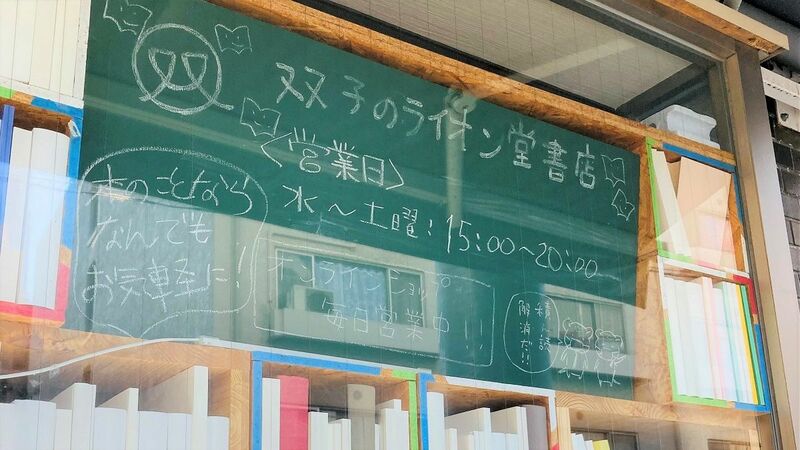 双
双子のライオン堂書店
<営業日>
水～土曜:15:00～20:00
本のことなら
なんでも
お気軽に!
オンラインショップ
毎日営業中!!
積ん読
解消だ!!